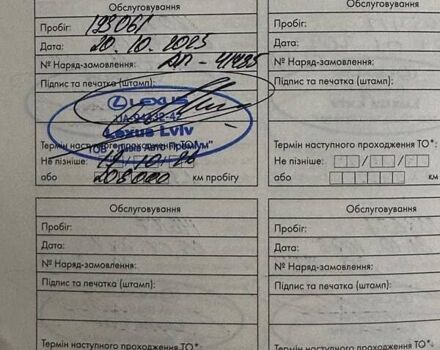 Обслуговування
Пробіг: 193061
Дата: 20.10.2025
№ Наряд-замовлення: АП-41495
Підпис та печатка (штамп):
LEXUS
UA-94332-42
Lexus Lviv
Термін наступного проходження ТО*:
ТОВ "Діва Авто Преміум"
Не пізніше: 19/10/26
або 208000 км пробігу
Обслуговування
Пробіг:
Дата:
№ Наряд-замовлення:
Підпис та печатка (штамп):
Термін наступного проходження ТО*:
Не пізніше: / /
або км пробігу
Обслуговування
Пробіг:
Дата:
№ Наряд-замовлення:
Підпис та печатка (штамп):
Термін наступного проходження ТО*:
Обслуговування
Пробіг:
Дата:
№ Наряд-замовлення:
Підпис та печатка (штамп):
Термін наступного проходження ТО*: